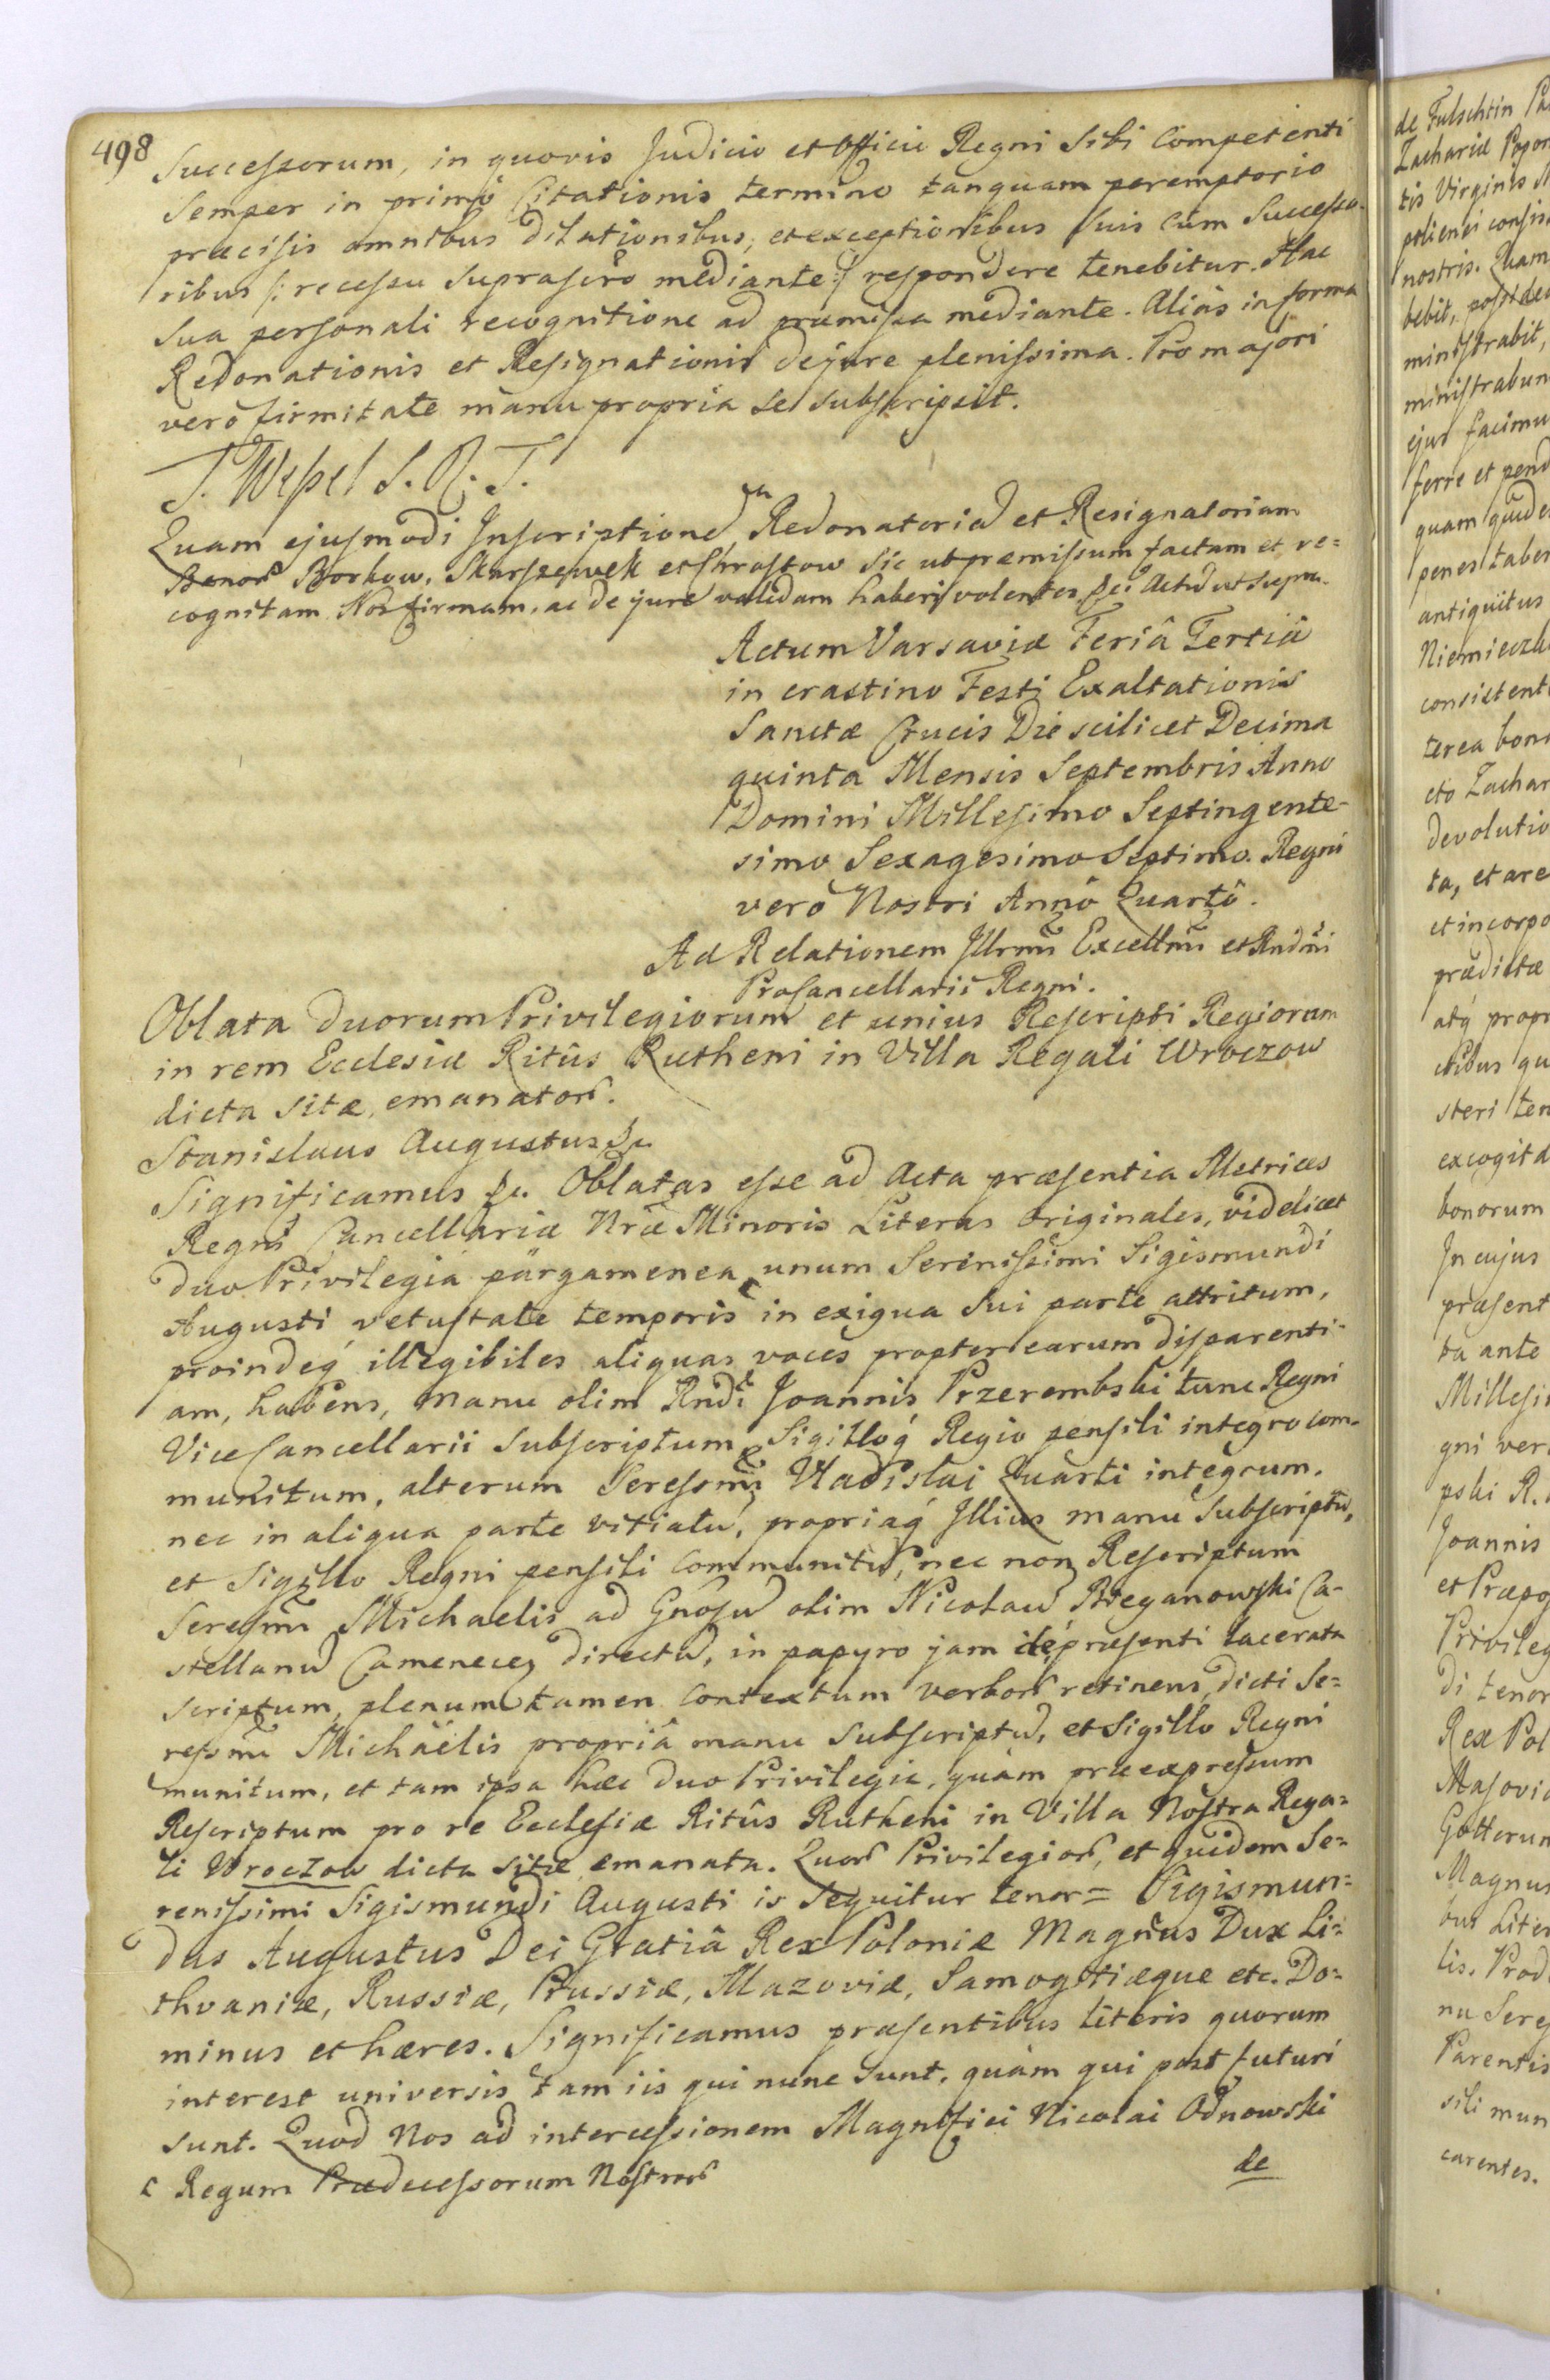 498
Successorum, in quovis Judicio et Officii Regni Sibi Competenti
Semper in primo Citationis termino tanquam peremptorio
præcisis omnibus dilationibus, et exceptionibus Suis Cum Successo-
ribus /: recessu suprascro mediante :/ respondere tenebitur. Hac
Sua personali recognitione ad præmissa mediante. Alias in forma
Redonationis et Resignationis de jure plenissima. Pro majori
vero firmitate manu propria se subscripsit.
T. Wessel S. R. T.
Quam ejusmodi Inscriptione Redonatoria et Resignatoriam
Bonor Borkow, Skarszewek et Chrostow sic ut præmissum factam et re=
cognitam Nos firmam, ac de jure validam haberi volentes &c. Actu ut supra.
Actum Varsaviæ Feriâ Tertiâ
in crastino Festi Exaltationis
Sanctæ Crucis Die scilicet Decima
quinta Mensis Septembris Anno
Domini Millesimo Septingente-
simo Sexagesimo Septimo. Regni
vero Nostri Annô Quartô.
Ad Relationem Illrmi Excellmi et Rndmi
ProCancellarii Regni.
Oblata duorum Privilegiorum et unius Rescripti Regiorum
in rem Ecclesiæ Ritûs Rutheni in Villa Regali Wroczow
dicta sitæ, emanator.
Stanislaus Augustus &c.
Significamus &c. Oblatas esse ad Acta præsentia Metrices
Regni Cancellariæ Nræ Minoris Literas Originales, videlicet
duo Privilegia pargamenea unum Serenissimi Sigismundi
Augusti vetustate temporis in exigua Sui parte attritum,
proindeq́ illegibiles aliquas voces propter earum disparenti-
am, habens, manu olim Rndi Joannis Przerembski tunc Regni
ViceCancellarii Subscriptum, Sigilloq́ Regio pensili integro com-
munitum, alterum Seressmi Vladislai Quarti integrum,
nec in aliqua parte vitiatu, propriaq́ Illius manu Subscriptu,
et Sigillo Regni pensili Communitu, nec non Rescriptum
Seressmi Michaelis ad Gnosu olim Nicolau Bieganowski Ca-
stellanu Camenecen directu, in papyro jam de præsenti lacerata
scriptum, plenum tamen Contextum verbor retinens, dicti Se=
ressmi Michaëlis propriâ manu Subscriptu, et Sigillo Regni
munitum, et tam ipsa hæc duo Privilegia, quàm præexpressum
Rescriptum pro re Ecclesiæ Ritûs Rutheni in Villa Nostra Rega=
li Wroczow dicta sitæ emanata. Quor Privilegior, et quidem Se=
renissimi Sigismundi Augusti is sequitur tenor = Sigismun=
dus Augustus Dei Gratiâ Rex Poloniæ Magnus Dux Li=
thvaniæ, Russiæ, Prussiæ, Mazoviæ, Samogitiæque etc. Do=
minus et hæres. Significamus præsentibus literis quorum
interest universis tam iis qui nunc Sunt, quàm qui post futuri
sunt. Quod Nos ad intercessionem Magnifici Nicolai Odnowski
Regum Prædecessorum Nostror
de
de Fulschtin
Zachariæ
tis Virginis
nostris. Quam
bebit,
ministrabit,
ministrabun
ejus facimu
ferre et pend
quam quide
penes taber
antiquitus
Niemieczk
consistent
terea bon
cto Zachar
devolutio
ta, et are
et incorpo
prædictæ
atq́ propr
steri ten
excogita
bonorum
In cujus
præsent
ta ante
Millesi
gni ver
pski R.
Joannis
et Præpo
Privileg
di tenor
Rex Pol
Masovi
Gottorun
Magnus
bus Liter
lis. Prod
nu Seres
Parentis
sili mun
carentes.